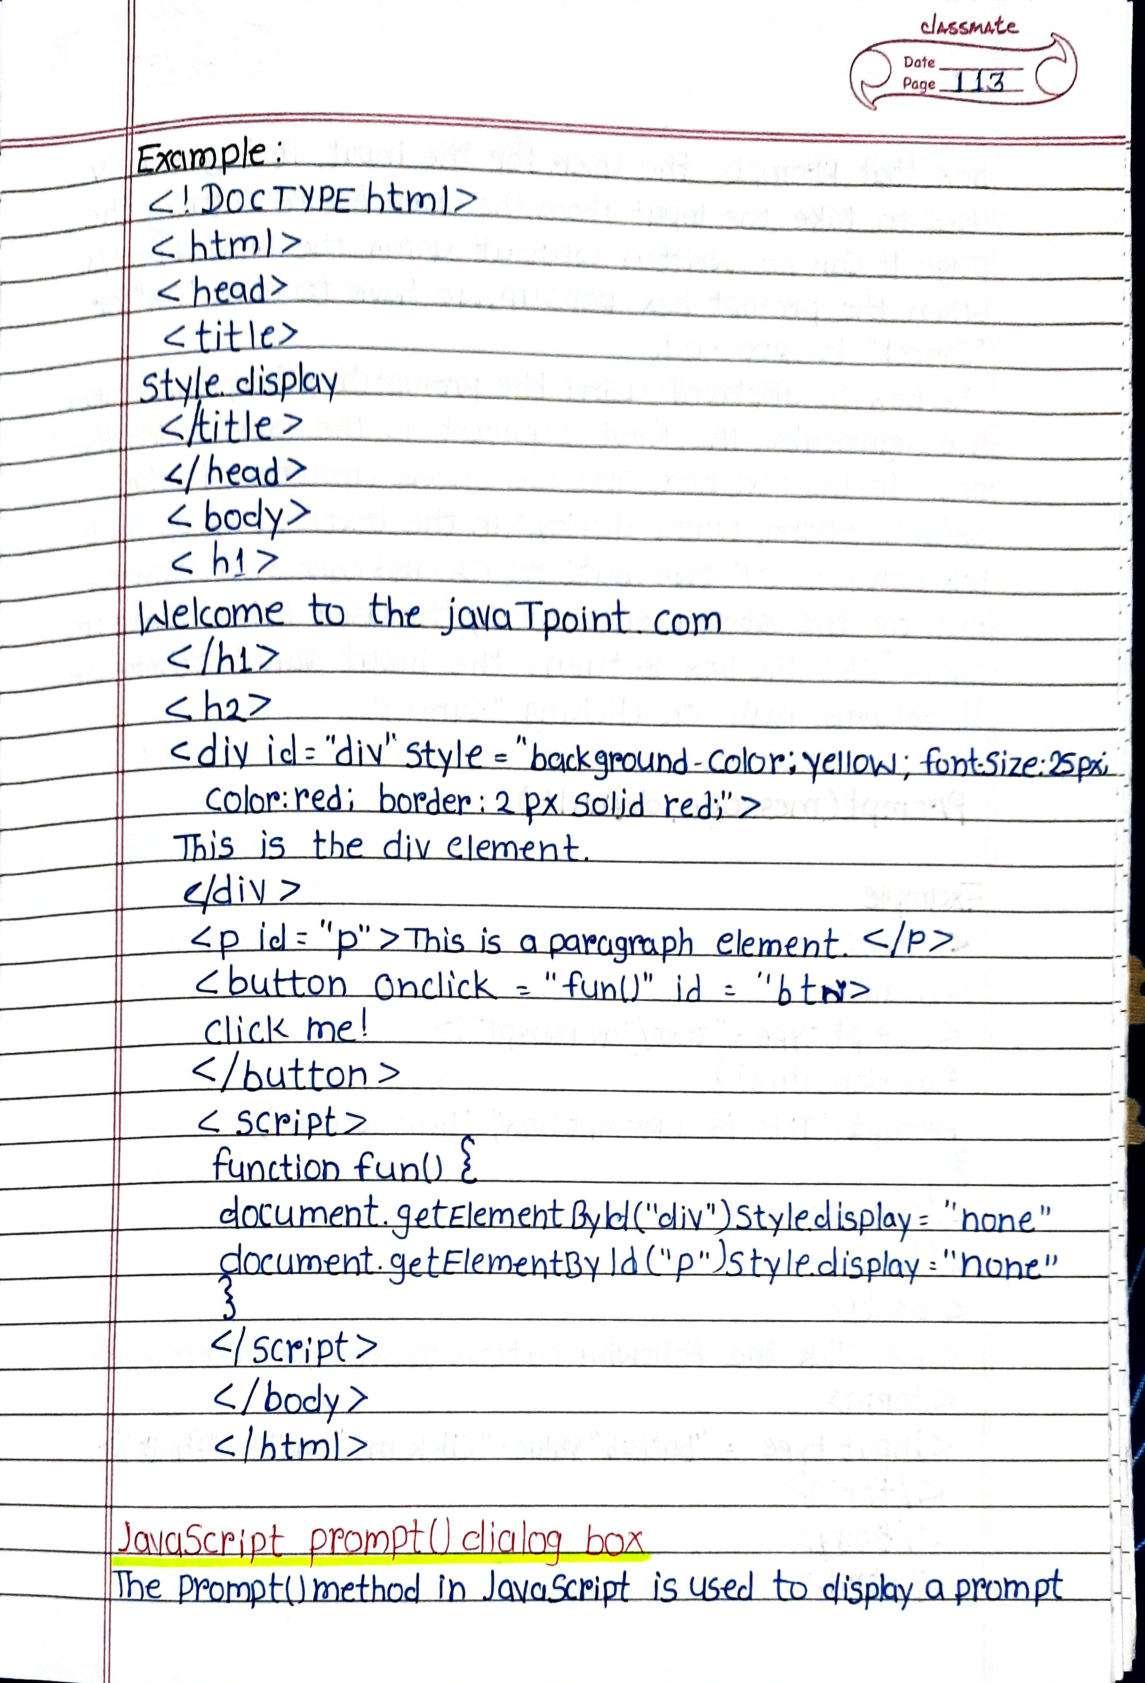 classmate
Date
Page 113
Example:
<!DOCTYPE html>
<html>
<head>
<title>
style.display
</title>
</head>
<body>
<h1>
Welcome to the javaTpoint.com
</h1>
<h2>
<div id="div" style="background-color:yellow; fontsize:25px;
color:red; border:2px solid red;">
This is the div element.
</div>
<p id="p">This is a paragraph element. </p>
<button onclick = "fun()" id = "btn>
click me!
</button>
<script>
function fun() {
document.getElementById("div")style.display = "none"
document.getElementById("p")style.display = "none"
}
</script>
</body>
</html>
JavaScript prompt() dialog box
The prompt() method in JavaScript is used to display a prompt